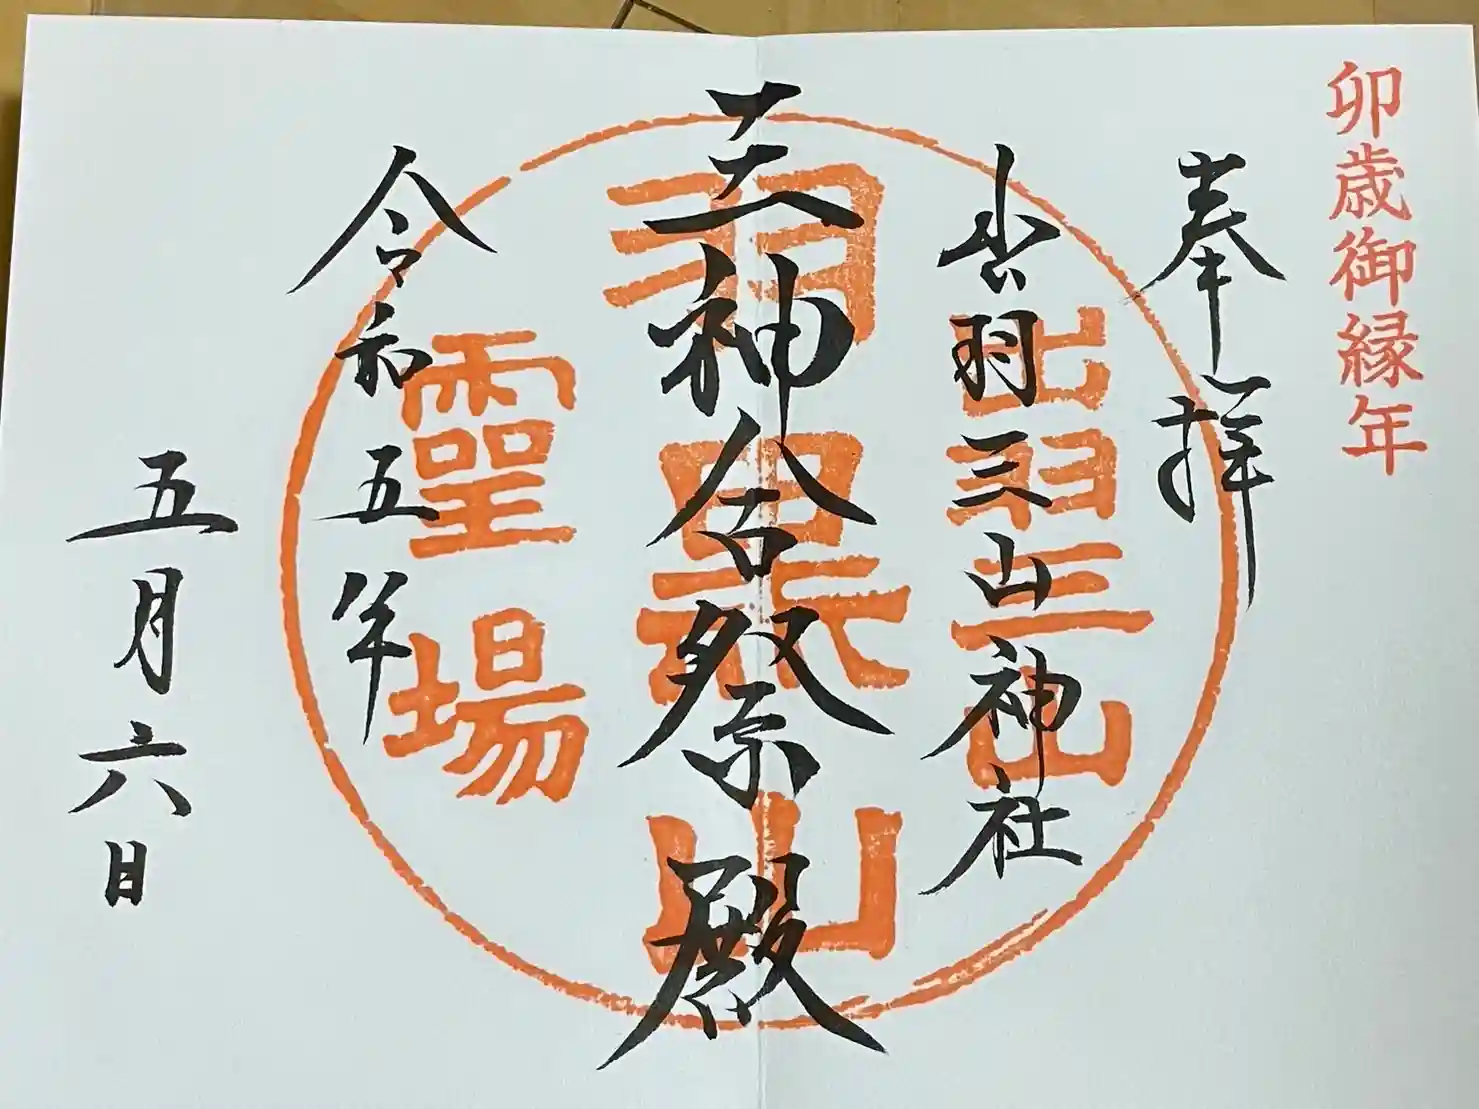 卯歳御縁年
奉拝
出羽三山神社
三神合祭殿
令和五年
五月六日
出羽三山
羽黒山
霊場